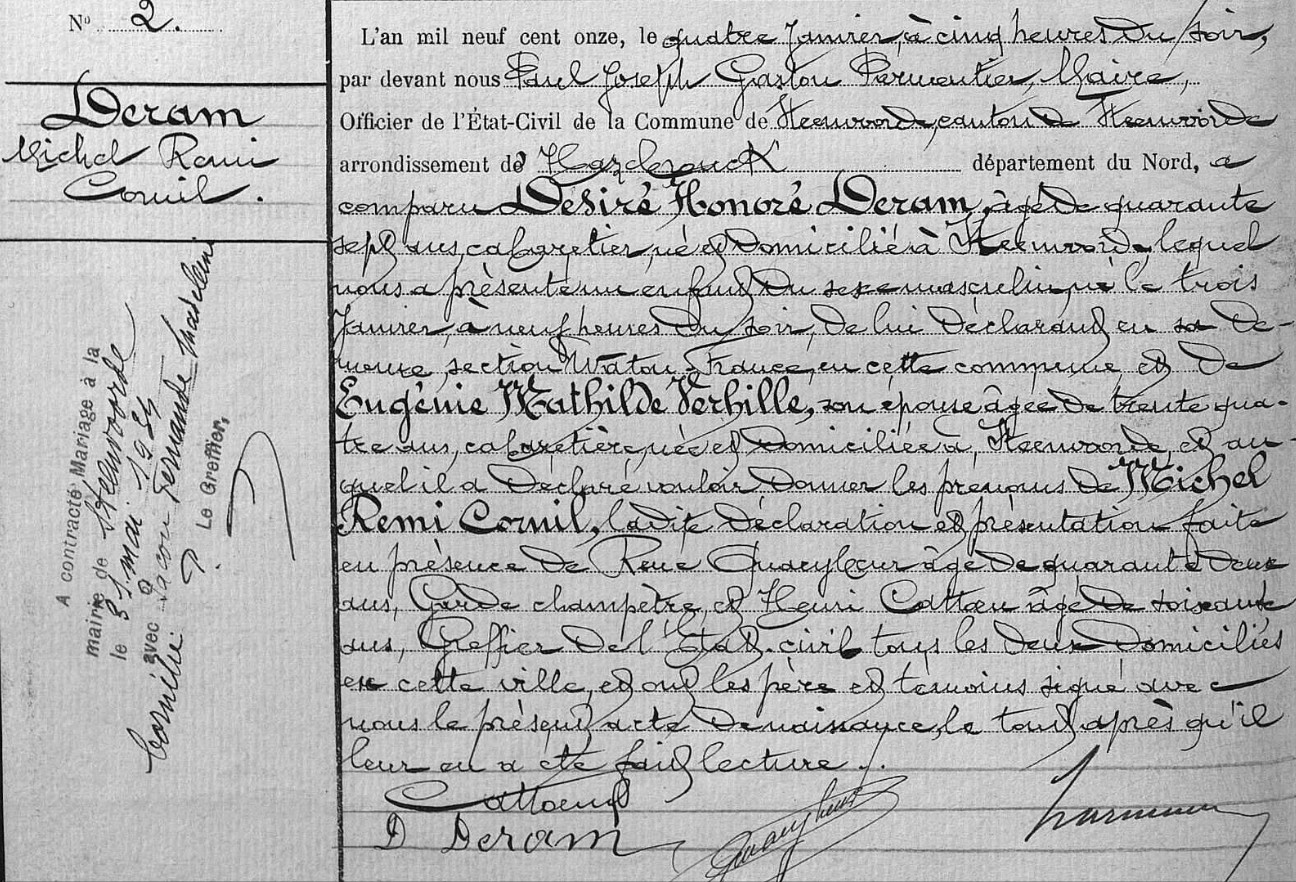 N° 2.
Deram
Michel Remi
Cornil.
A contracté Mariage à la
mairie de Steenvoorde
le 31 mai 1935
avec
Cornélie Fernande Madeleine
Le Greffier,
L'an mil neuf cent onze, le quatre Janvier, à cinq heures du soir,
par devant nous Paul Joseph Gaston Parmentier, Maire,
Officier de l'État-Civil de la Commune de Steenvoorde, canton de Steenvoorde
arrondissement de Hazebrouck département du Nord, a
comparu Désiré Honoré Deram, âgé de quarante
sept ans, cabaretier, né et domicilié à Steenvoorde, lequel
nous a présenté un enfant du sexe masculin, né le trois
Janvier, à neuf heures du soir, de lui déclarant en sa de-
meure, section Watou-France, en cette commune et de
Eugénie Mathilde Verhille, son épouse âgée de trente qua-
tre ans, cabaretière, née et domiciliée à Steenvoorde, et au-
quel il a déclaré vouloir donner les prénoms de Michel
Remi Cornil, ladite déclaration et présentation faite
en présence de René Quaeybeur âgé de quarante deux
ans, Garde champêtre, et Henri Cattoen âgé de soixante
ans, Greffier de l'État-civil tous les deux domiciliés
en cette ville, et ont les père et témoins signé avec
nous le présent acte de naissance, le tout après qu'il
leur en a été fait lecture ./.
Cattoen
D Deram
Quaeybeur